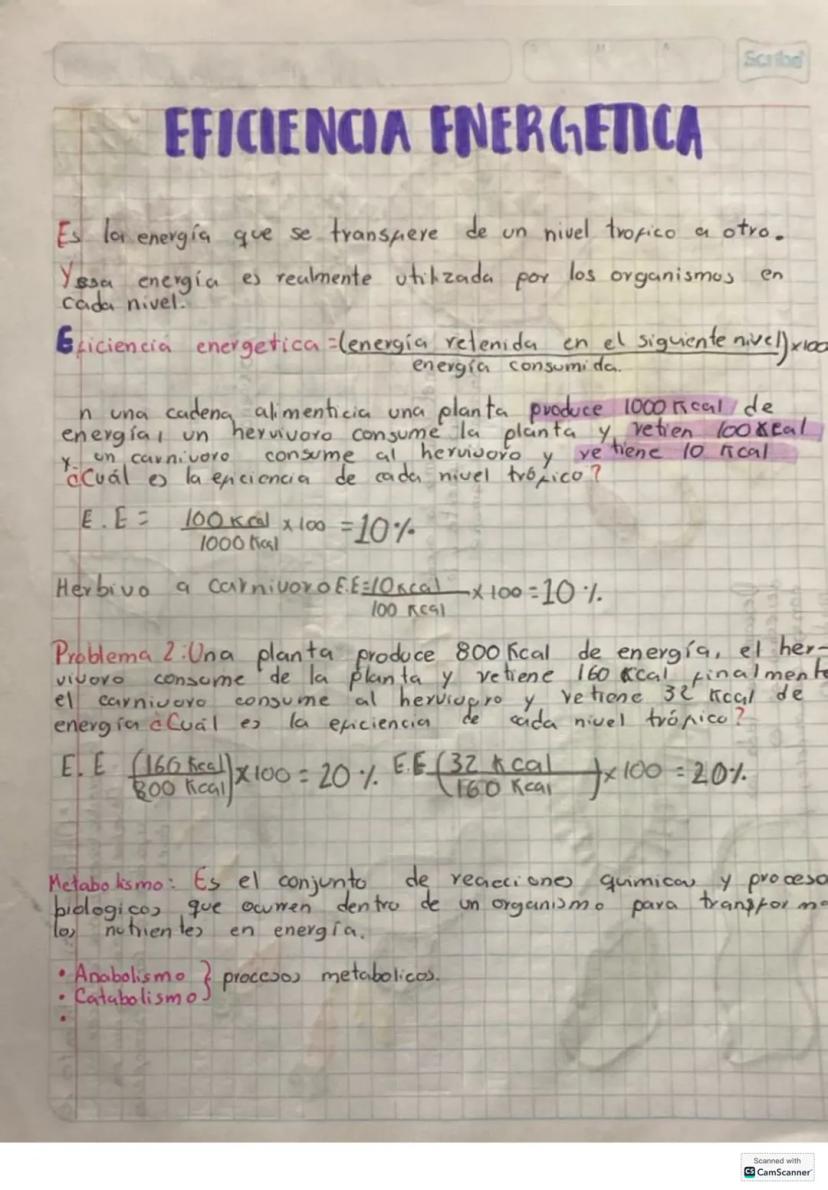 Scribe
EFICIENCIA ENERGETICA
Es la energía que se transfiere de un nivel trofico a otro.
Y esa energía es realmente utilizada por los organismos en
cada nivel.
Eficiencia energetica = (energía retenida en el siguiente nivel) x100
energía consumida.
n una cadena alimenticia una planta produce 1000 Kcal de
energía, un hervivoro consume la planta y retien 100 Kcal
y un carnivoro consume al hervivoro y retiene 10 Kcal
¿Cuál es la eficiencia de cada nivel trófico?
E.E = 100 Kcal x 100 = 10%
1000 Kcal
Herbivo a carnivoro E.E = 10 Kcal x 100 = 10 %.
100 Kcal
Problema 2: Una planta produce 800 Kcal de energía, el her-
vivoro consume de la planta y retiene 160 Kcal finalmente
el carnivoro consume al hervivoro y retiene 32 Kcal de
energía ¿Cuál es la eficiencia de cada nivel trófico?
E.E (160 Kcal) x 100 = 20 % E.E (32 Kcal) x 100 = 20%
800 Kcal 160 Kcal
Metabolismo: Es el conjunto de reacciones quimicas y proceso
biologicos que ocurren dentro de un organismo para transforma
los nutrientes en energía.
• Anabolismo } procesos metabolicos.
• Catabolismo
•
Scanned with
CS CamScanner